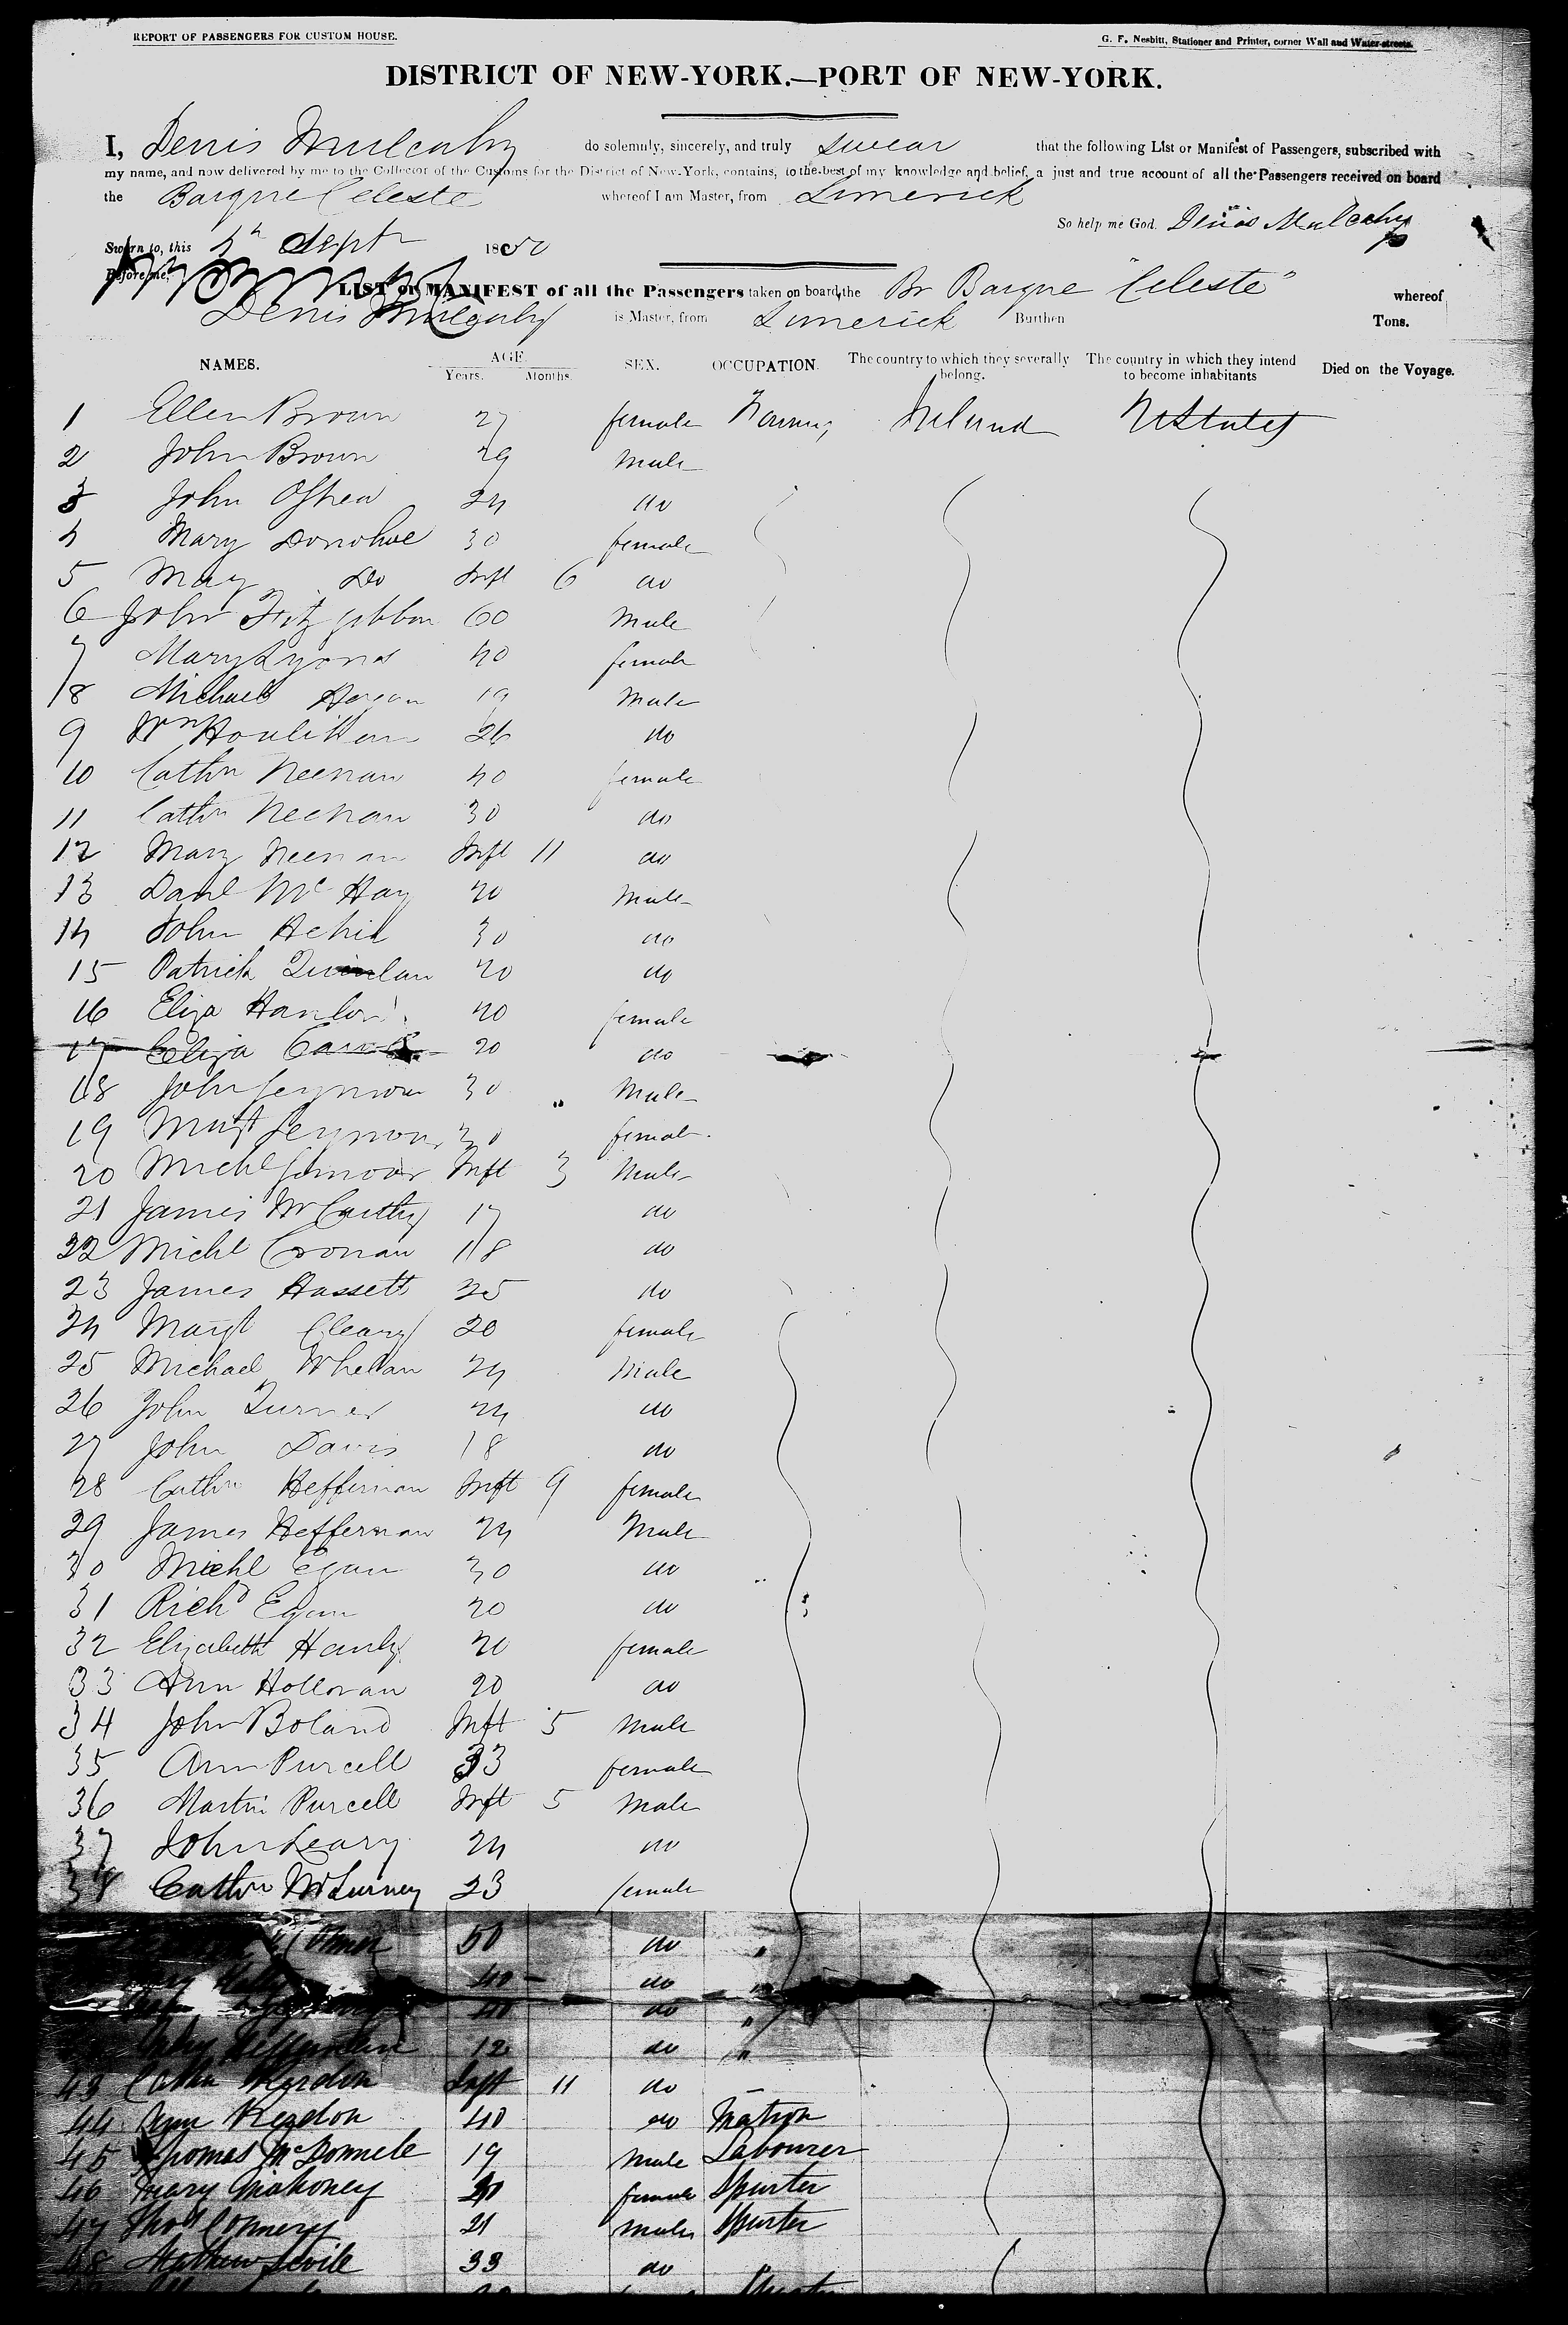 REPORT OF PASSENGERS FOR CUSTOM HOUSE.
G. F. Nesbitt, Stationer and Printer, corner Wall and Water-streets.
DISTRICT OF NEW-YORK.—PORT OF NEW-YORK.
I, Denis Mulcahy do solemnly, sincerely, and truly swear that the following List or Manifest of Passengers, subscribed with
my name, and now delivered by me to the Collector of the Customs for the District of New-York, contains, to the best of my knowledge and belief, a just and true account of all the Passengers received on board
the Barque Celeste whereof I am Master, from Limerick
So help me God. Denis Mulcahy
Sworn to, this 4th Sept 1850
Before me,
LIST or MANIFEST of all the Passengers taken on board the Br Barque "Celeste" whereof
Denis Mulcahy is Master, from Limerick Burthen Tons.
NAMES. AGE Years. Months. SEX. OCCUPATION. The country to which they severally belong. The country in which they intend to become inhabitants Died on the Voyage.
1 Ellen Brown 27 female Ireland UStates
2 John Brown 29 Male
3 John OShea 24 do
4 Mary Donohoe 30 female
5 May Do Inft 6 do
6 John Fitzgibbon 60 Male
7 Mary Lyons 40 female
8 Michael Hogan 19 Male
9 Wm Houlihan 26 do
10 Cathn Neenan 40 female
11 Cathn Neenan 30 do
12 Mary Neenan Inft 11 do
13 Danl Mc Hay 20 Male
14 John 30 do
15 Patrick Quinlan 20 do
16 Eliza Hanlon 20 female
17 Eliza 20 do
18 John Seymour 30 " Male
19 Margt Seymour 30 female
20 Michl Seymour Inft 3 Male
21 James McCarthy 17 do
22 Michl Cronan 18 do
23 James Hassett 25 do
24 Margt Cleary 20 female
25 Michael Whelan 24 Male
26 John Turner 24 do
27 John Davis 18 do
28 Cathn Heffernan Inft 9 female
29 James Heffernan 24 Male
30 Michl Egan 30 do
31 Richd Egan 20 do
32 Elizabeth Hanly 20 female
33 Ann Holloran 20 do
34 John Boland Inft 5 Male
35 Ann Purcell 33 female
36 Martin Purcell Inft 5 Male
37 John Leary 24 do
38 Cathn 23 female
50 do "
40 do "
40 do "
Heffernan 12 do "
43 Cathn Inft 11 do
44 40 do Matron
45 Thomas McDonnele 19 Male Labourer
46 Mary Mahoney female Spinster
47 Thos Connery 21 Male Spinster
48 Mathew 33 do